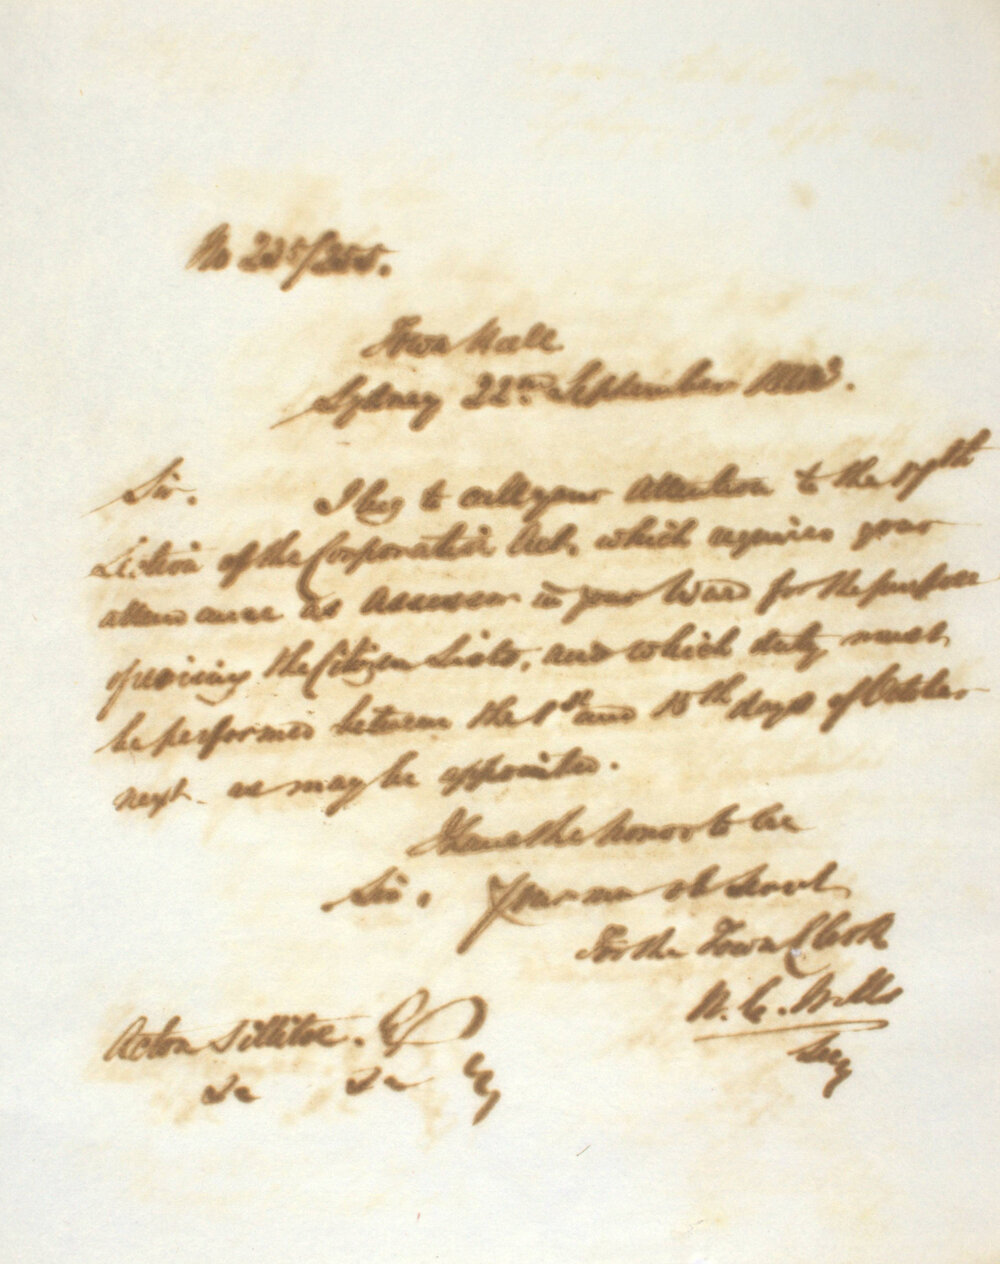 No 235/255.
Town Hall
Sydney 22nd September
Sir. I beg to call your attention to the 17th
Section of the Corporation Act, which requires your
attendance as Assessor in your Ward for the purpose
of revising the Citizen Lists, and which duty must
be performed between the 1st and 15th days of October
next. as may be appointed.
I have the honor to be
Sir. Your ob Servt
For the Town Clerk
W. C. Wills
Acton Sillitoe.